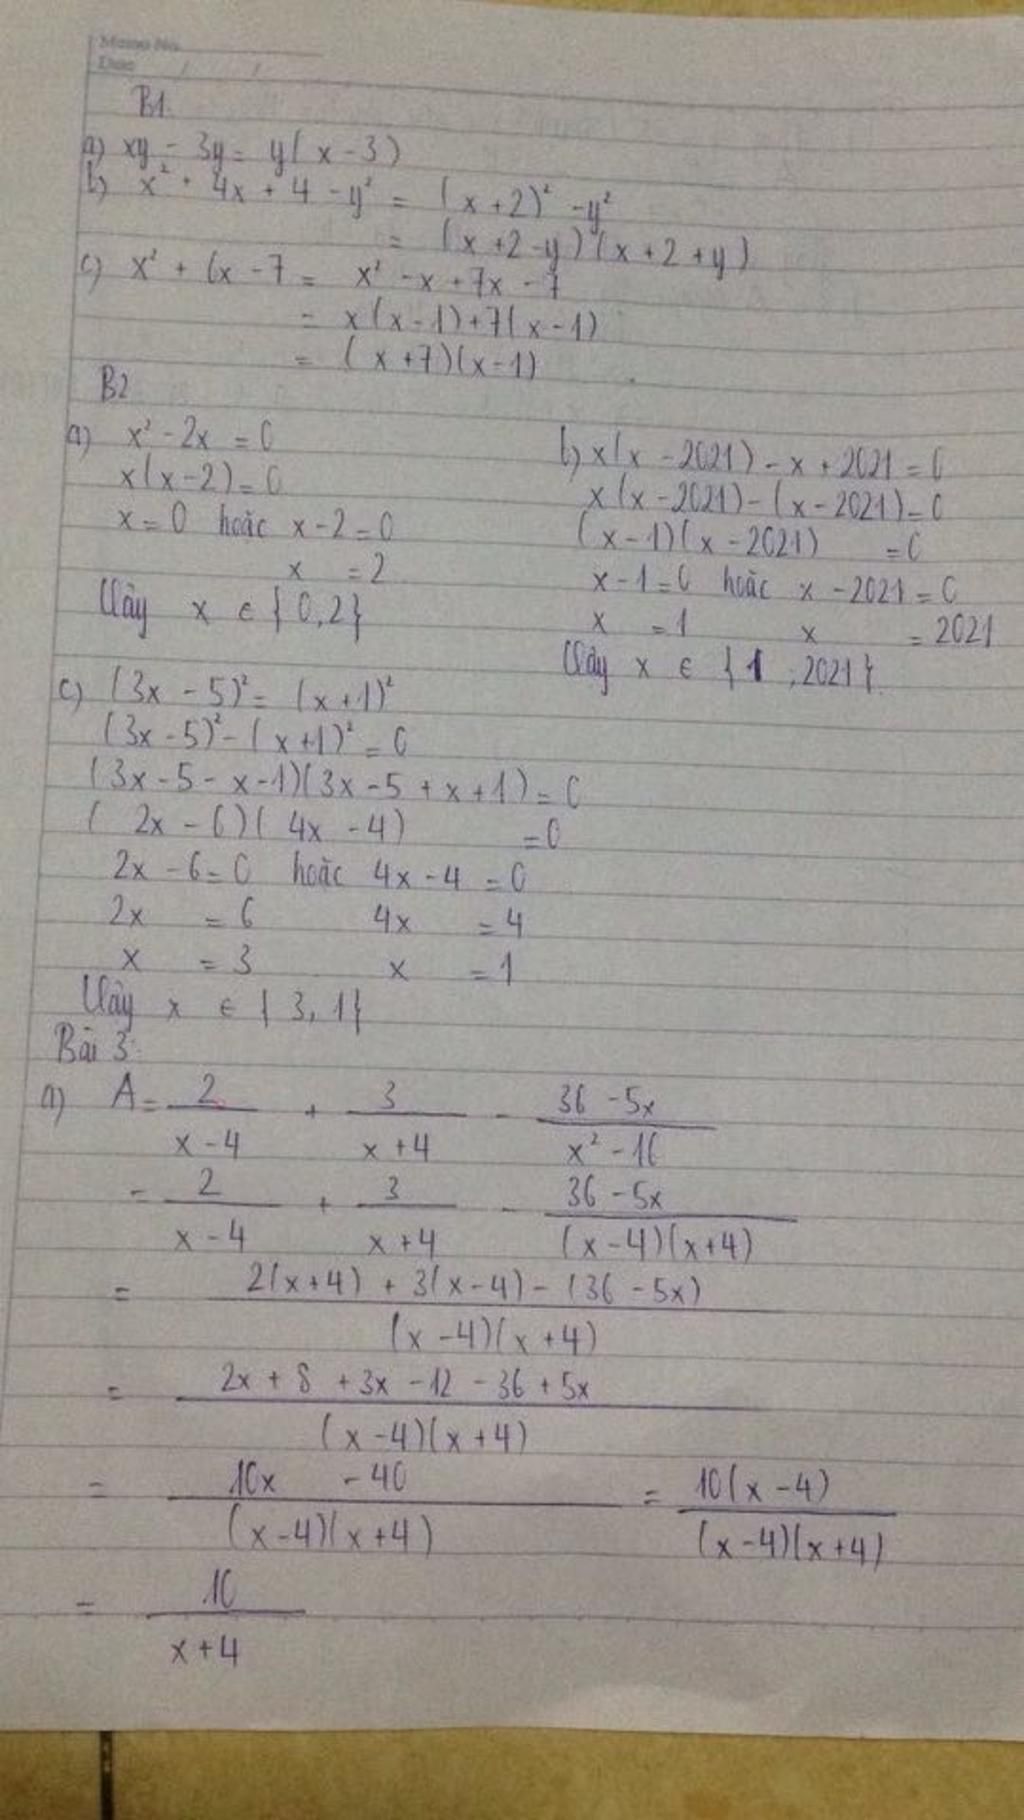 Memo No.
Date / /
B1.
a) xy - 3y = y(x - 3)
b) x² + 4x + 4 - y² = (x+2)² - y²
= (x+2-y)(x+2+y)
c) x² + 6x - 7 = x² - x + 7x - 7
= x(x-1)+7(x-1)
= (x+7)(x-1)
B2
a) x² - 2x = 0
x(x-2)=0
x=0 hoặc x-2=0
x = 2
Vậy x ∈ {0,2}
b) x(x - 2021) - x + 2021 = 0
x(x-2021)-(x-2021)=0
(x-1)(x-2021) = 0
x-1=0 hoặc x-2021=0
x = 1 x = 2021
Vậy x ∈ {1 ; 2021}.
c) (3x - 5)² = (x+1)²
(3x-5)² - (x+1)² = 0
(3x-5-x-1)(3x-5+x+1)=0
( 2x - 6)( 4x - 4) = 0
2x - 6 = 0 hoặc 4x - 4 = 0
2x = 6 4x = 4
x = 3 x = 1
Vậy x ∈ {3, 1}
Bài 3:
a) A = 2/(x-4) + 3/(x+4) - (36-5x)/(x²-16)
= 2/(x-4) + 3/(x+4) - (36-5x)/((x-4)(x+4))
= (2(x+4) + 3(x-4) - (36-5x))/((x-4)(x+4))
= (2x + 8 + 3x - 12 - 36 + 5x)/((x-4)(x+4))
= (10x - 40)/((x-4)(x+4)) = 10(x-4)/((x-4)(x+4))
= 10/(x+4)